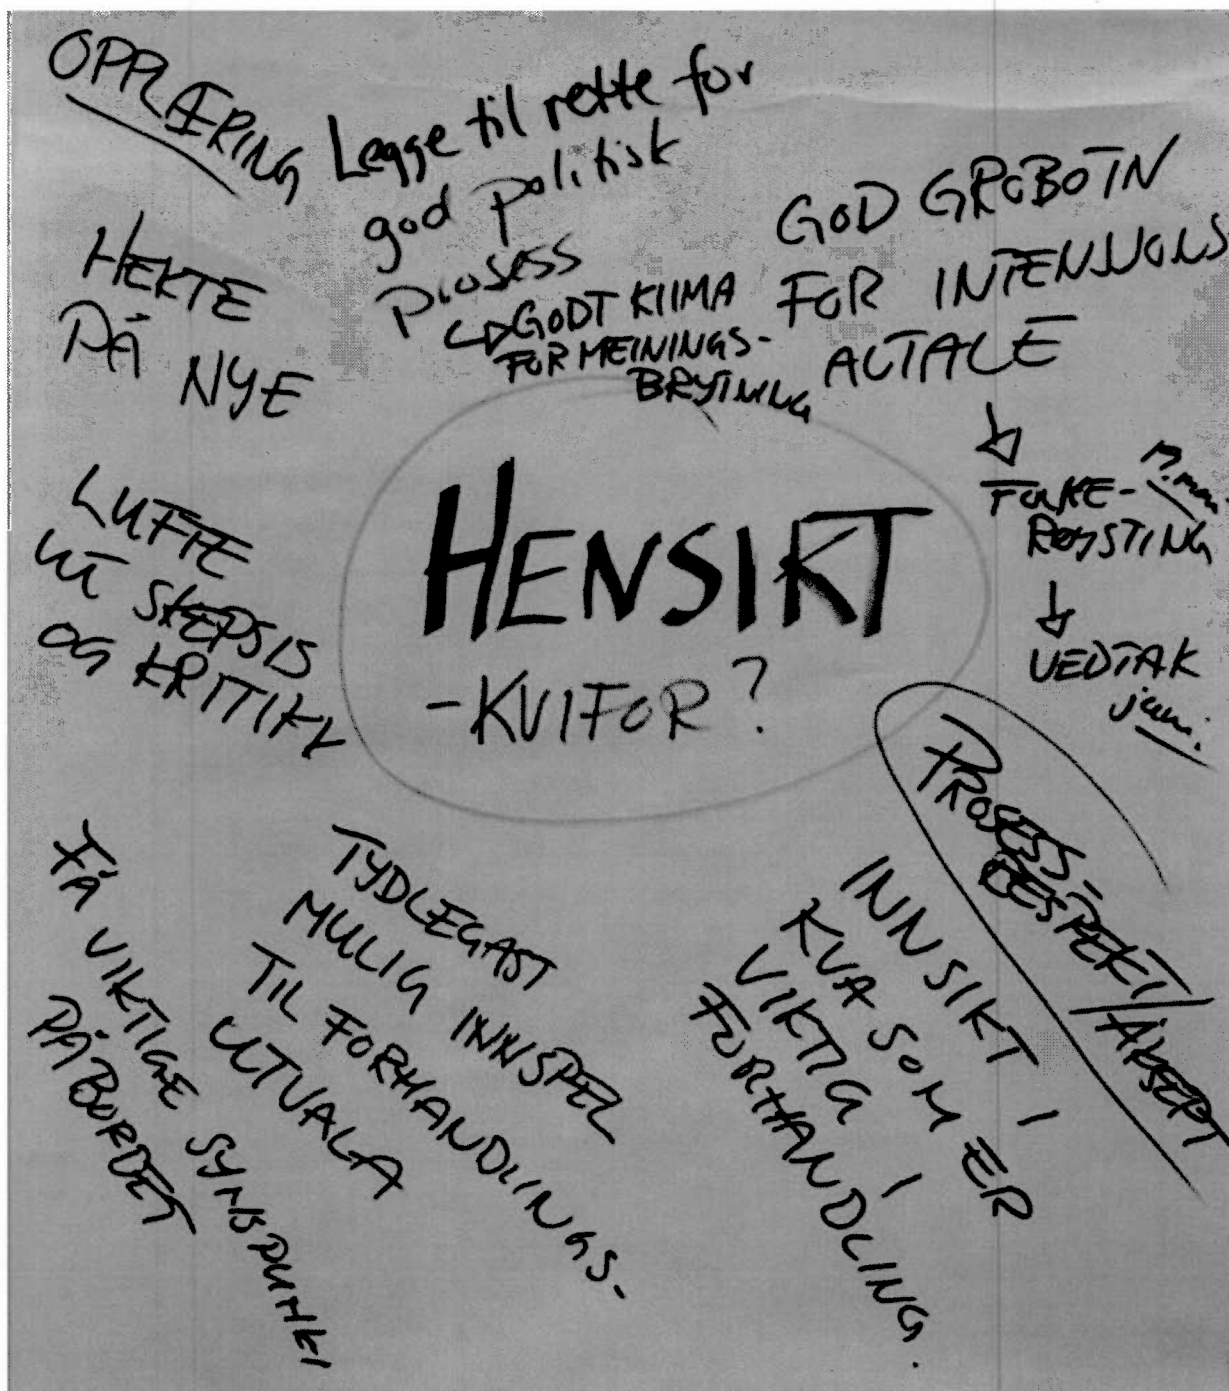 OPPLÆRING
Legge til rette for
god politisk
prosess
↳ GODT KLIMA
FOR MEININGS-
BRYTNING
GOD GROBOTN
FOR INTENSJONS
AVTALE
↓
FOLKE-
RØYSTING
↓
VEDTAK
juni.
HEKTE
PÅ NYE
LUFTE
UT SKEPSIS
OG KRITIKK
HENSIKT
-KVIFOR?
PROSESS-
RESPEKT/
AKSEPT
INNSIKT I
KVA SOM ER
VIKTIG I
FORHANDLING.
TYDLEGAST
MULIG INNSPEL
TIL FORHANDLINGS-
UTVALA
FÅ VIKTIGE SYNSPUNKT
PÅ BORDET